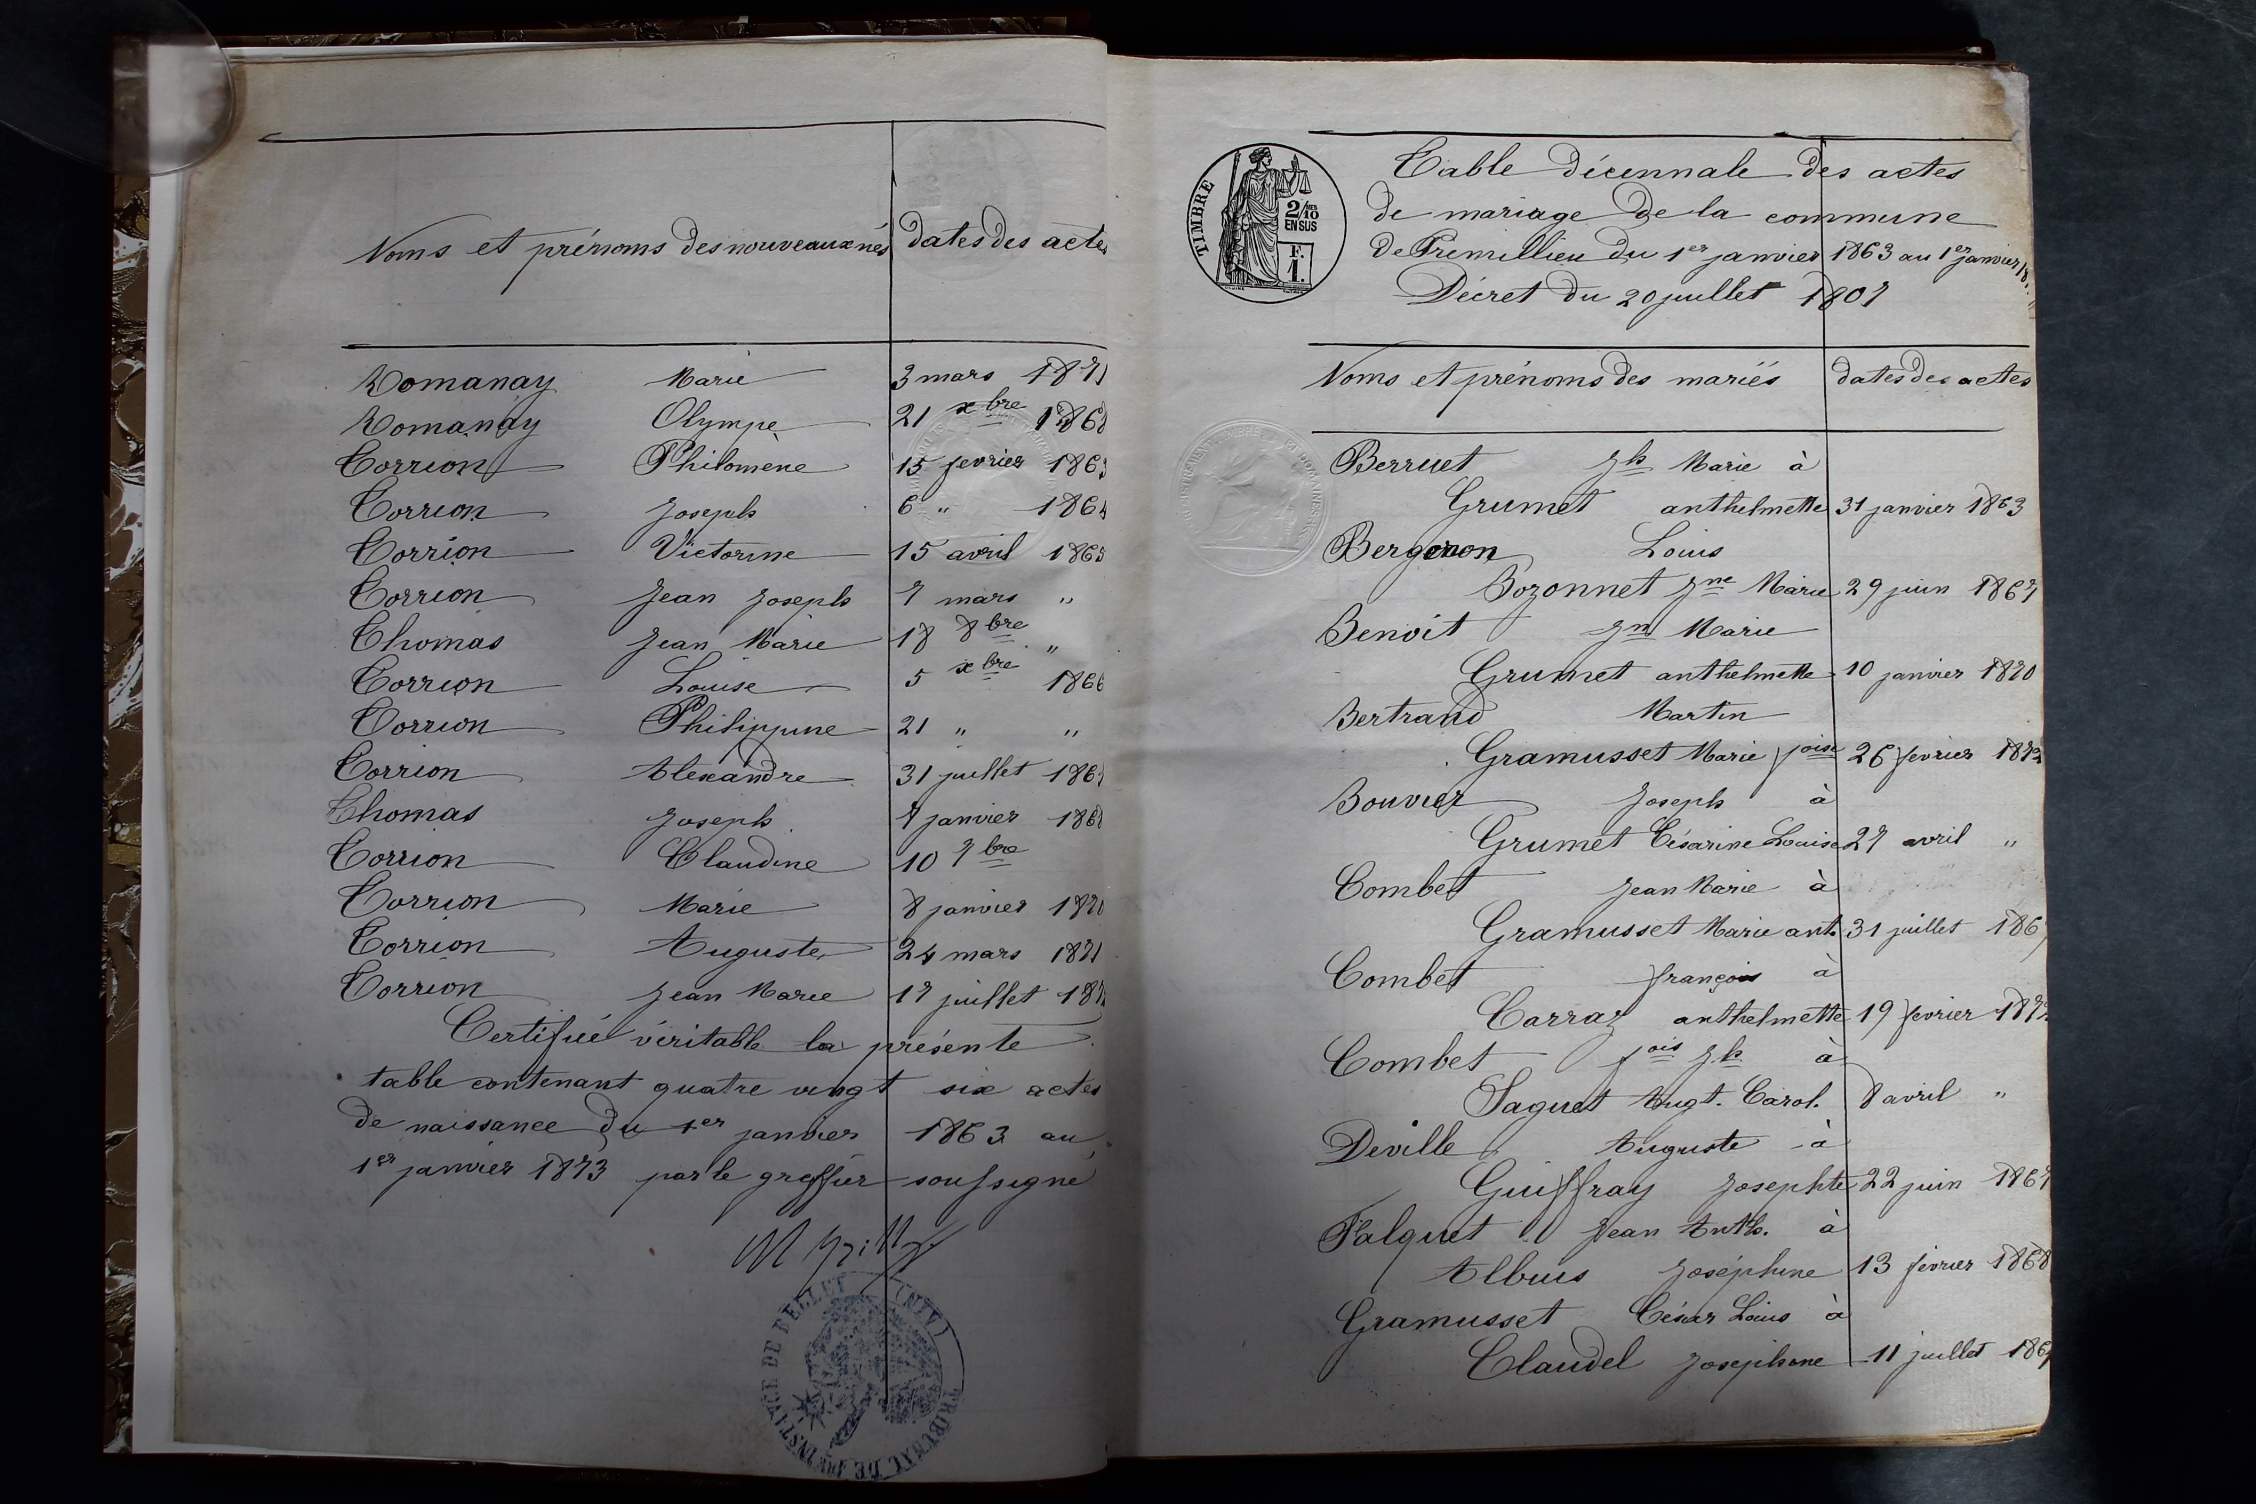 Noms et prénoms des nouveaux nés dates des actes
Romanay Marie 3 mars 1871
Romanay Olympe 21 xbre 1863
Torrion Philomène 15 fevrier 1863
Torrion Joseph 6 " 1864
Torrion Victorine 15 avril 1865
Torrion Jean Joseph 7 mars "
Thomas Jean Marie 18 8bre "
Torrion Louise 5 xbre 1866
Torrion Philippine 21 " "
Torrion Alexandre 31 juillet
Thomas Joseph 7 janvier 1868
Torrion Claudine 10 7bre
Torrion Marie 8 janvier 1870
Torrion Auguste 24 mars 1871
Torrion Jean Marie 17 juillet
Certifiée véritable la présente
table contenant quatre vingt six actes
de naissance du 1er janvier 1863 au
1er janvier 1873 par le greffier soussigné
TRIBUNAL DE 1ERE INSTANCE DE BELLEY (AIN)
TIMBRE
2/10MES
EN SUS
F.
1.
Table décennale des actes
de mariage de la commune
de Premillieu du 1er janvier 1863 au 1er janvier
Décret du 20 juillet 1807
Noms et prénoms des mariés dates des actes
Berruet Jh Marie à
Grumet anthelmette 31 janvier 1863
Bergeron Louis
Bozonnet Jne Marie 29 juin 1867
Benoit Jn Marie
Grumet anthelmette 10 janvier 1870
Bertrand Martin
Gramusset Marie foise 26 fevrier 1872
Bouvier Joseph à
Grumet Césarine Louise 27 avril "
Combet Jean Marie à
Gramusset Marie ant. 31 juillet 1867
Combet françois à
Carraz anthelmette 19 fevrier 1872
Combet fois Jh à
Saguet Augt. Carol. 8 avril "
Deville Auguste à
Guiffray Josephte 22 juin 1867
Falquet Jean Anth. à
Albus Joséphine 13 fevrier 1868
Gramusset César Louis à
Claudel Josephine 11 juillet